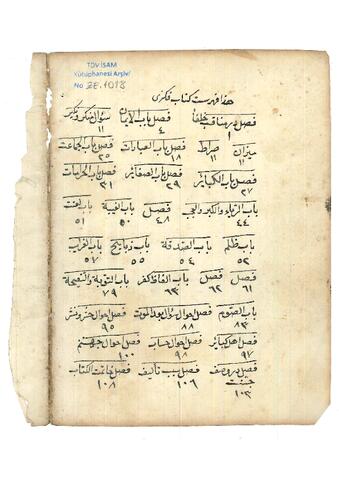 TDV İSAM
Kütüphanesi Arşivi
No 2E.1018
هذا فهرست كتاب فكرى
فصل در مناقب خلفا ١ فصل باب الايمان ٤ سؤال منكر و نكير ١١
ميزان ١١ صراط ١١ فصل باب العبارات ١٨ فصل باب جماعت ٢٥
فصل باب الكبائر ٢٧ فصل باب الصغائر ٢٩ فصل باب الحرامات ٣١
باب الرياء والكبر والعجب ٤٤ فصل ٤٨ باب الغيبة ٥٠ باب ٥١
باب ظلم ٥٢ باب الصدقة ٥٤ باب ذبايح ٥٥ باب ٥٧
فصل ٦١ فصل ٦٢ باب الفاظ كفر ٦٣ باب التوبة والنصيحة ٧٩
باب الصوم ٨٣ فصل احوال سؤال بعد الموت ٨٨ فصل احوال حشر و نشر ٩٥
فصل اهل كبائر ٩٧ فصل احوال حساب ٩٨ فصل احوال جهنم ١٠٠
فصل در وصف جنت ١٠٣ فصل سبب تأليف ١٠٦ فصل خاتمت الكتاب ١٠٨